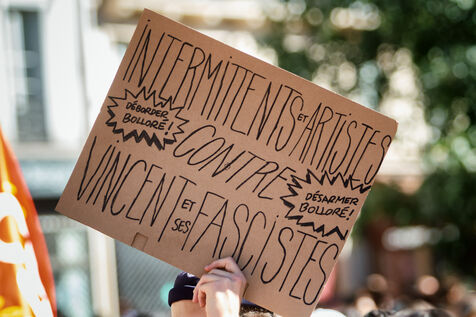 INTERMITTENTS ET ARTISTES
DÉBORDER
BOLLORÉ!
CONTRE
DÉSARMER
BOLLORÉ!
VINCENT ET SES FASCISTES